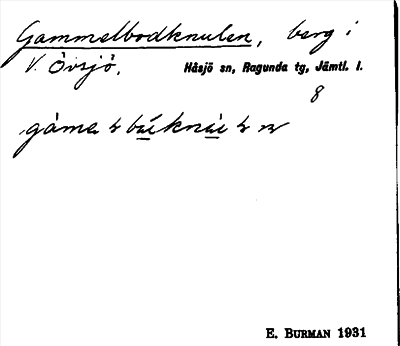 Gammelbodknulen, berg i
V. Övsjö. Håsjö sn, Ragunda tg, Jämtl. l.
8
E. BURMAN 1931